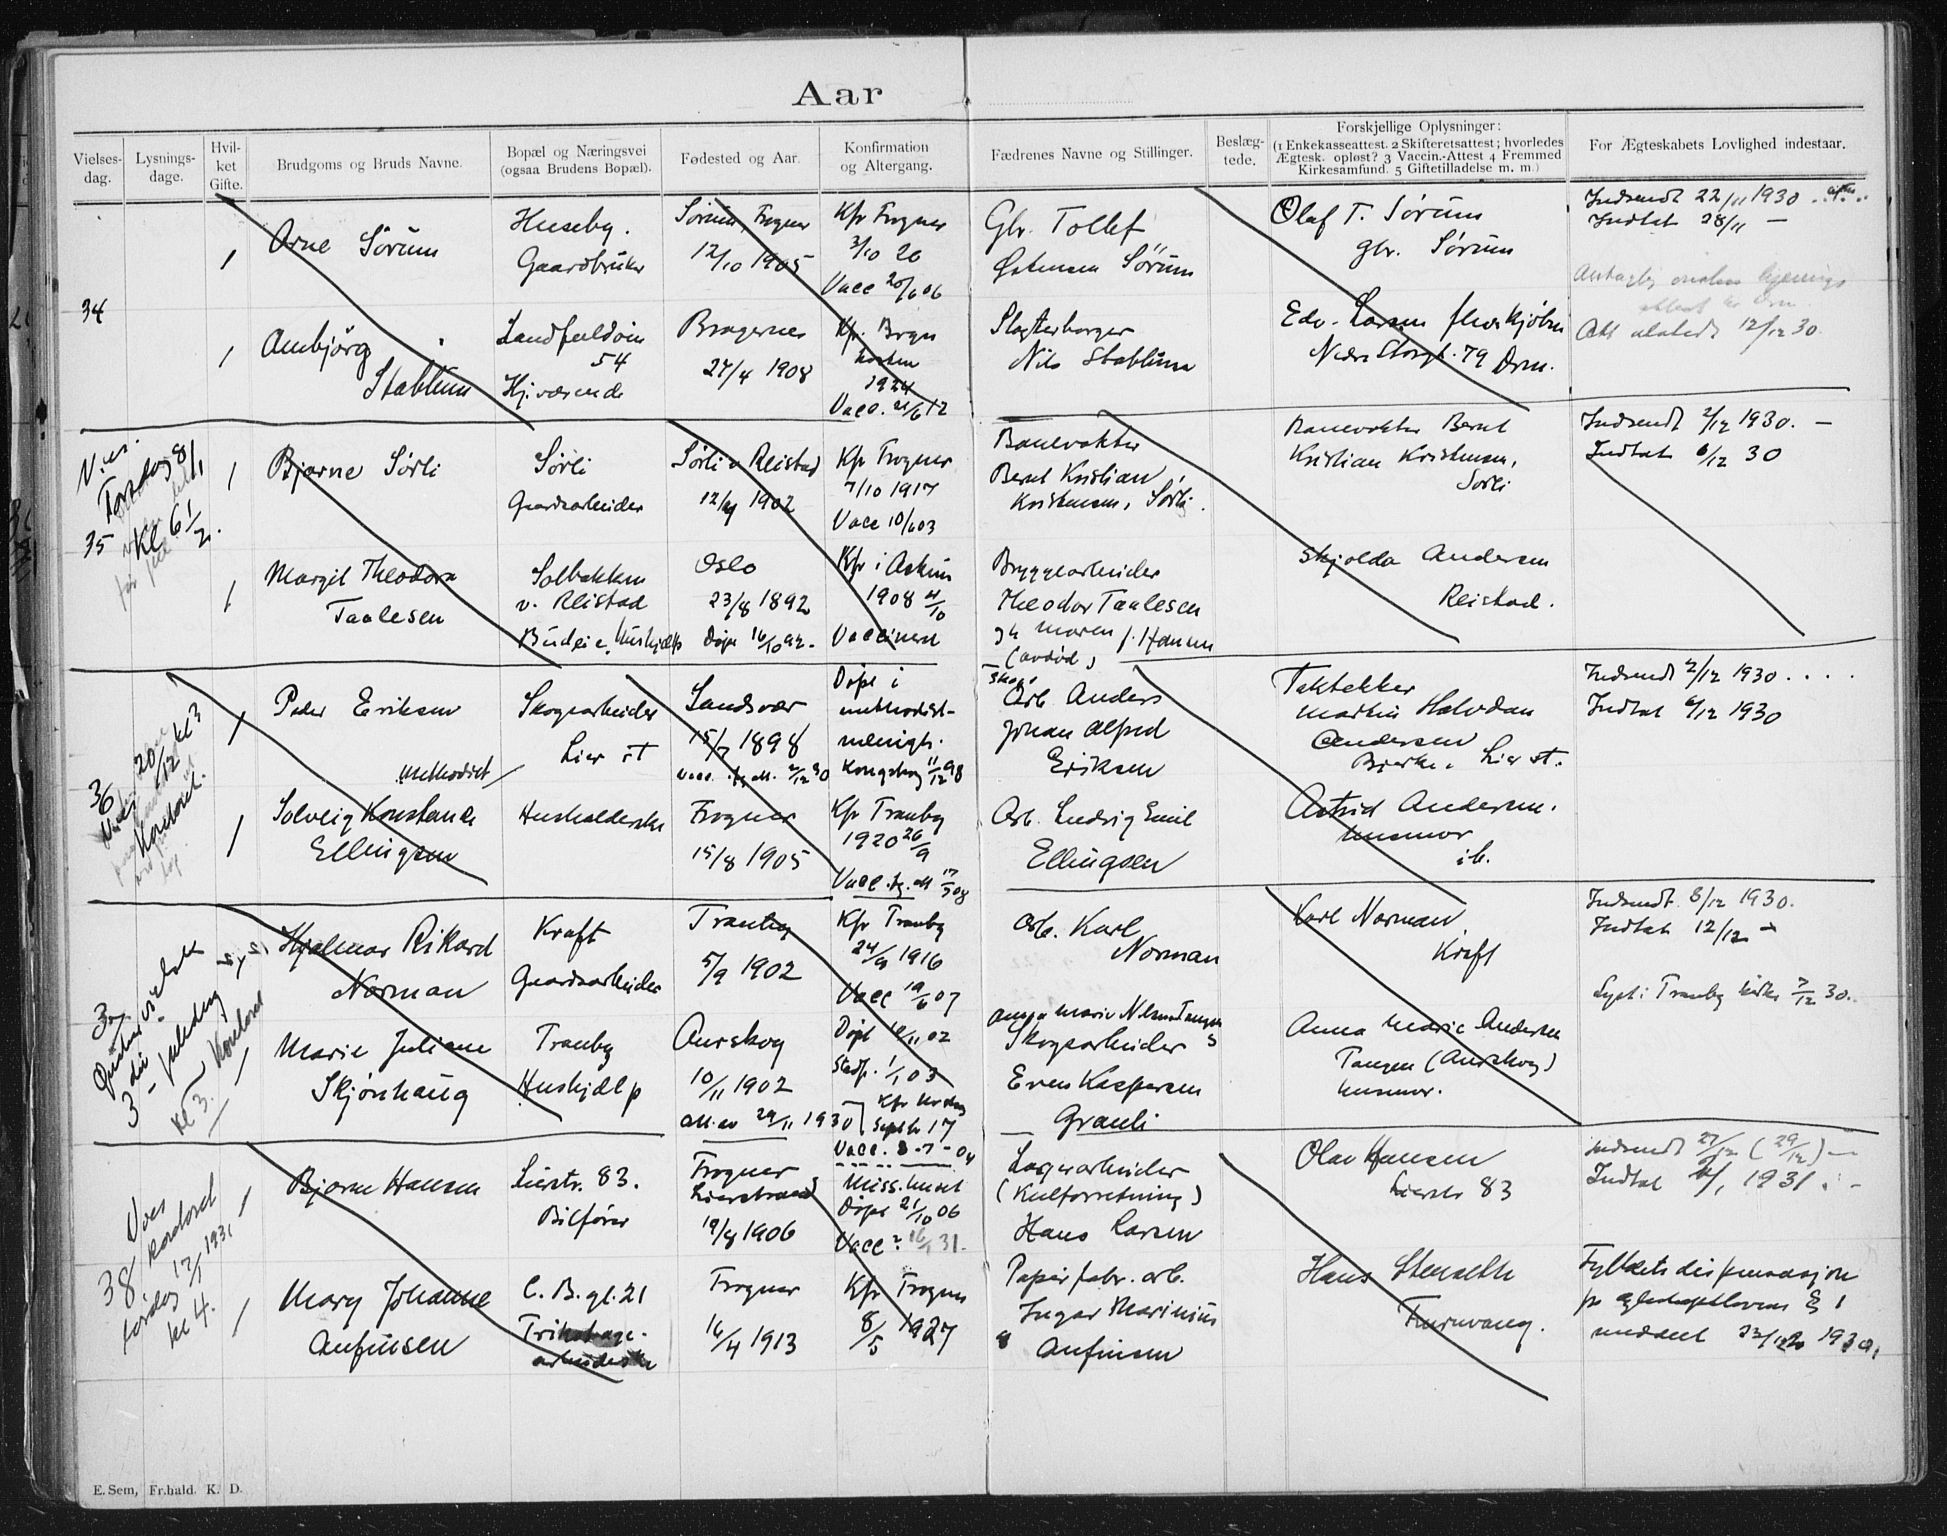 Aar
Vielses-dag.
Lysnings-dage.
Hvil-ket Gifte.
Brudgoms og Bruds Navne.
Bopæl og Næringsvei
(ogsaa Brudens Bopæl).
Fødested og Aar.
Konfirmation
og Altergang.
Fædrenes Navne og Stillinger.
Beslæg-tede.
Forskjellige Oplysninger:
(1 Enkekasseattest. 2 Skifteretsattest; hvorledes
Ægtesk. opløst? 3 Vaccin.-Attest 4 Fremmed
Kirkesamfund. 5 Giftetilladelse m. m.)
For Ægteskabets Lovlighed indestaar.
34
1
Arne Sørum
Huseby.
Gaardbruker
Sørum, Frogner
12/10 1905
Kfr Frogner
3/10 20
Vacc 20/6 06
Gbr. Tollef
Sørum
Olaf T. Sørum
gbr. Sørum
Indsendt 22/11 1930
Indtat 28/11 —
1
Ambjørg
Stablum
54
Bragernes
27/4 1908
1924
Vacc. 21/6 12
Nils Stablum
Edv. Larsen
Nedre Storgt. 79 Drm.
12/12 30.
35
Torsdag 8/1
kl 6 1/2.
1
Bjarne Sørli
Sørli
Gaardsarbeider
Sørli v Reistad
1902
Kfr Frogner
7/10 1917
Vacc 10/6 03
Banevokter
Bernt Kristian
Kristensen, Sørli.
Banevokter Bernt
Kristian Kristensen,
Sørli
Indsendt 2/12 1930. —
Indtat 6/12 30
1
Margit Theodora
Taalesen
Solbakken
v. Reistad
Budeie, Hushjelp
Oslo
23/8 1892
Døpt 16/10 92.
Kfr i Askim
1908 4/10
Vaccinert
Bryggearbeider
Theodor Taalesen
og Maren f. Hansen
(avdød)
Skjolda Andersen
Reistad.
36
20/12 kl 3
Kontoret.
1
Peder Eriksen
Methodist
Skogsarbeider
Lier st
Sandsvær
15/7 1898
Døpt i
methodist-
menigh.
Kongsberg 11/12 98
Skogs
Arb. Anders
Johan Alfred
Eriksen
Taktekker
Martin Halvdan
Andersen
Bjerke, Lier st.
Indsendt 2/12 1930
Indtat 6/12 1930
1
Solveig Konstance
Ellingsen
Husholderske
Frogner
15/8 1905
Kfr Tranby
1920 26/9
Arb. Ludvig Emil
Ellingsen
Astrid Andersen.
husmor
ib.
Hjalmar Rikard
Norman
Kraft
Gaardsarbeider
Tranby
5/9 1902
Kfr Tranby
24/9 1916
Vacc 19/6 07
Arb. Karl
Norman
Karl Norman
Kraft
Indsendt 8/12 1930.
Indtat 12/12 —
Lyst i Tranby kirke 7/12 30.
3 juledag
kl 3.
Kontoret
1
Marie Juliane
Skjønhaug
Tranby
Hushjælp
Aurskog
10/11 1902
att. av 29/11 1930
Stadf. 1/1 03
Sept 17
Vacc. 8-7-04
Anna Marie
Skogsarbeider
Even Kaspersen
Grauli
Anna Marie Andersen
Tangen (Aurskog)
husmor.
38
Vies
kontoret
lørdag 17/1 1931
kl 4.
1
Bjarne Hansen
Lierstr. 83.
Bilfører
Frogner
Lierstrand
19/8 1906
Miss.huset
Døpt 21/10 06
Vacc? 16/1 31.
Lagerarbeider
(Kulforretning)
Hans Larsen
Olav Hansen
Lierstr 83
Indsendt 27/12 (29/12) —
Indtat 1931. -
1
Mary Johanne
Anfinsen
C. B. gt. 21
Trikotage-
arbeiderske
Frogner
16/4 1913
Kfr Frogner
8/5 1927
Papirfabr. arb.
Ingar Marinius
Anfinsen
Hans Stenseth
Furuvang.
Fylkets dispensasjon
fr egteskapslovens § 1
meddelt
E. Sem, Fr.hald. K. D.